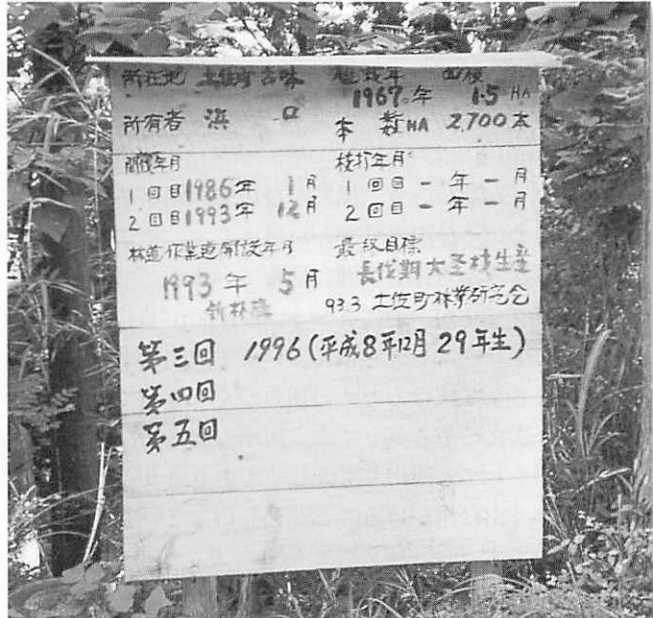 所在地 土佐町古味 植栽年 面積
1967年 1.5 HA
所有者 浜口 本数HA 2,700本
間伐年月 枝打年月
1回目1986年 1月 1回目 - 年 - 月
2回目1993年 12月 2回目 - 年 - 月
林道作業道開設年月 最終目標
1993年 5月 長伐期大径材生産
93.3 土佐町林業研究会
第三回 1996(平成8年12月 29年生)
第四回
第五回